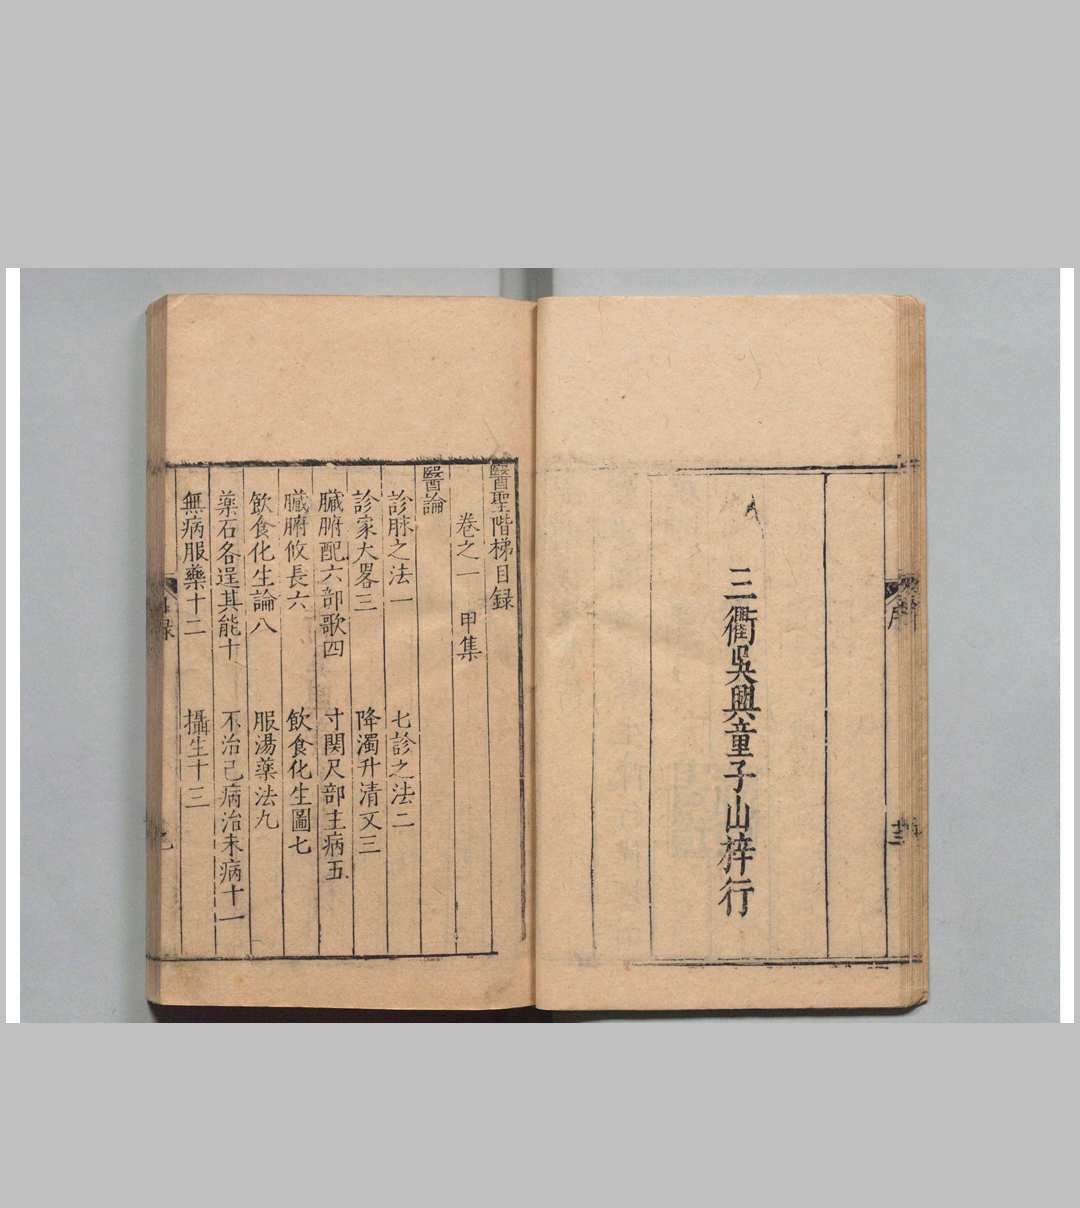 三衢吳興童子山梓行
序
十二
醫聖階梯目録
卷之一 甲集
醫論
診脉之法一 七診之法二
診家大畧三 降濁升清文三
臟腑配六部歌四 寸関尺部主病五
臟腑攸長六 飲食化生圖七
飲食化生論八 服湯藥法九
藥石各逞其能十 不治已病治未病十一
無病服藥十二 攝生十三
目録